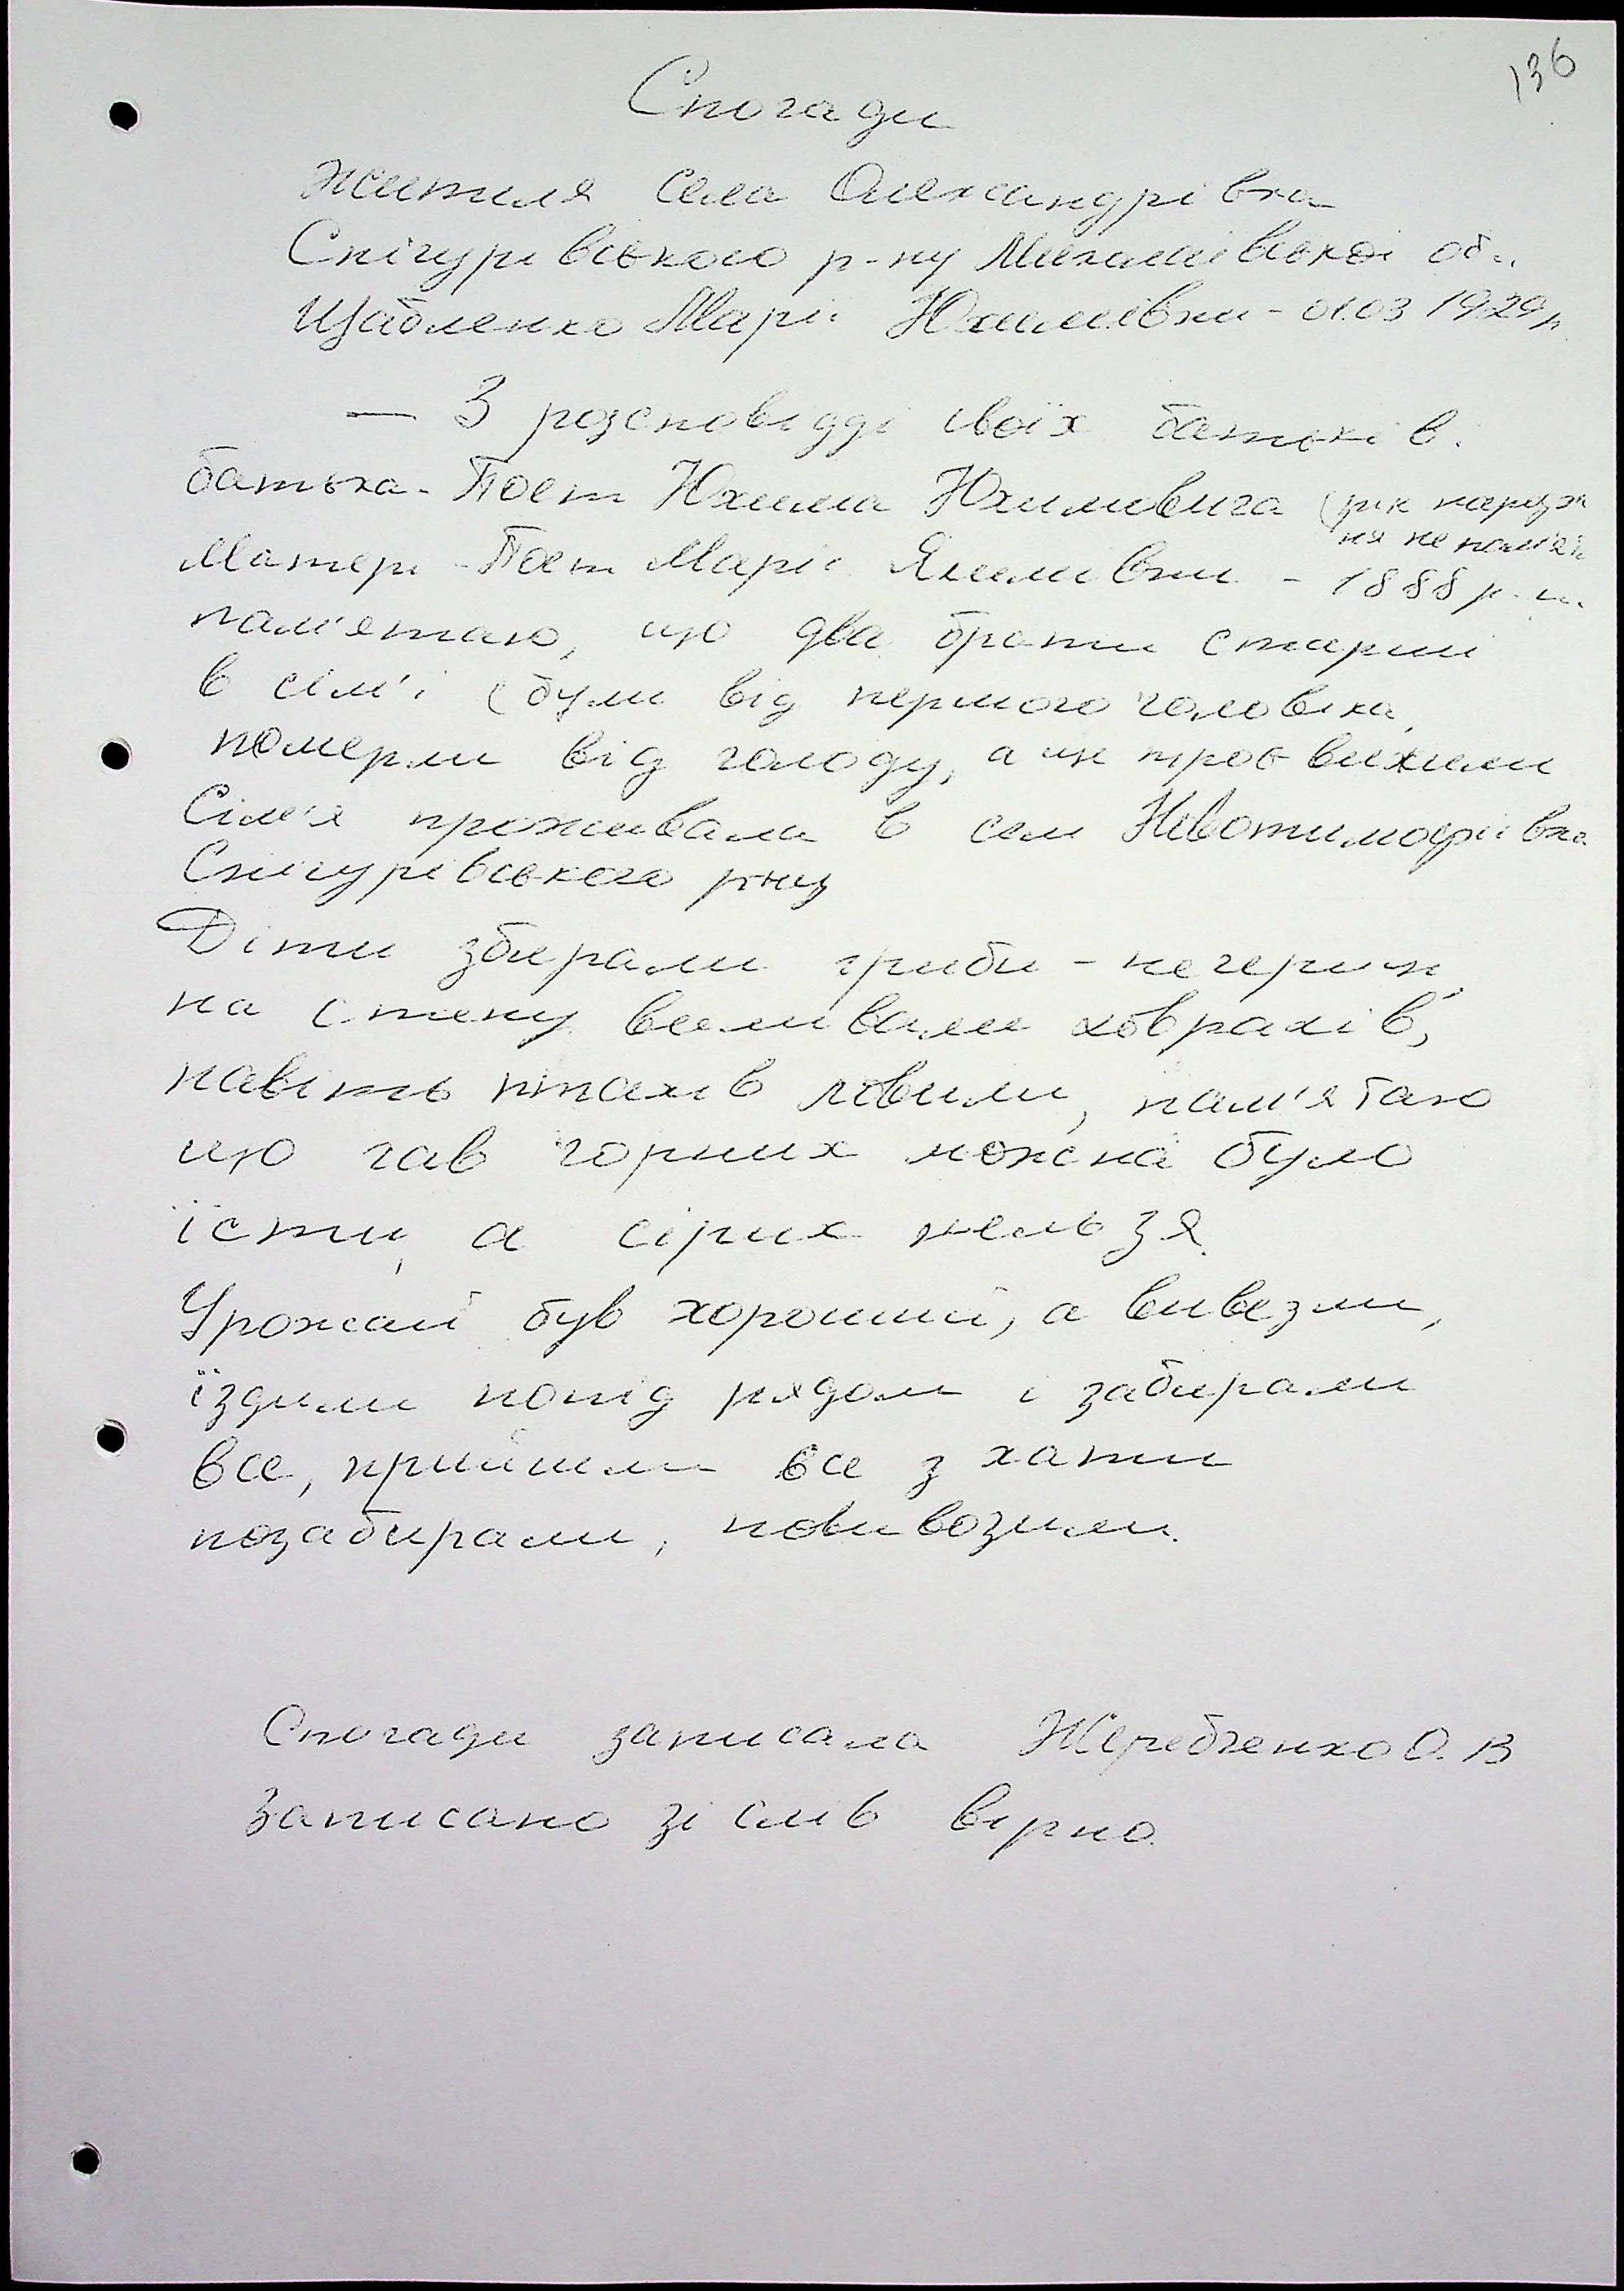 136
Спогади
Жителя села Олександрівка
Снігурівського р-ну Миколаївської об.
Щабленко Марії Юхимівни - 01.03 1929р
— З розсповідді своїх батьків.
батька - Поет Юхима Юхимовича (рік народж
ня не пам'ят
Матері - Поет Марії Якимівни - 1888 р.н.
пам'ятаю, що два брати старші
в сім'ї (були від першого чоловіка,
померли від голоду, а ще троє вижили
Сім'я проживала в селі Новотимофіївка
Снігурівського р-ну
Діти збирали гриби - печериці,
на степу виливали ховрахів,
навіть птахів ловили, пам'ятаю
що гав чорних можна було
їсти, а сірих нельзя.
Урожай був хороший, а вивезли,
їздили попід рядом і забирали
все, прийшли все з хати
позабирали, повивозили.
Спогади записала Жеребченко О. В
Записано зі слів вірно.